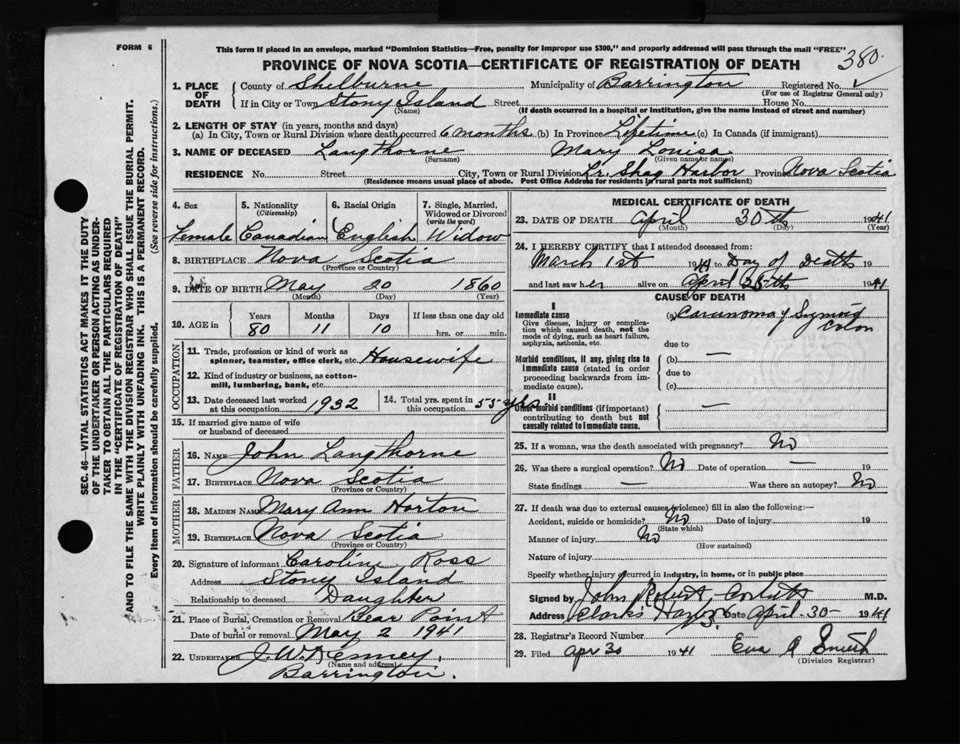 FORM 6
This form if placed in an envelope, marked "Dominion Statistics—Free, penalty for improper use $300," and properly addressed will pass through the mail "FREE"
380.
PROVINCE OF NOVA SCOTIA—CERTIFICATE OF REGISTRATION OF DEATH
1. PLACE OF DEATH County of Shelburne Municipality of Barrington Registered No.
(For use of Registrar General only)
If in City or Town Stony Island Street House No.
(Name) (If death occurred in a hospital or institution, give the name instead of street and number)
2. LENGTH OF STAY (in years, months and days)
(a) In City, Town or Rural Division where death occurred 6 months (b) In Province Lifetime (c) In Canada (if immigrant)
3. NAME OF DECEASED Langthorne Mary Louisa
(Surname) (Given name or names)
RESIDENCE No. Street City, Town or Rural Division Lr. Shag Harbor Province Nova Scotia
(Residence means usual place of abode. Post Office Address for residents in rural parts not sufficient)
4. Sex 5. Nationality (Citizenship) 6. Racial Origin 7. Single, Married, Widowed or Divorced (write the word)
Female Canadian English Widow
8. BIRTHPLACE Nova Scotia
(Province or Country)
9. DATE OF BIRTH May 20 1860
(Month) (Day) (Year)
10. AGE in Years Months Days If less than one day old
80 11 10 hrs. or min.
OCCUPATION
11. Trade, profession or kind of work as spinner, teamster, office clerk, etc. Housewife
12. Kind of industry or business, as cotton-mill, lumbering, bank, etc.
13. Date deceased last worked at this occupation 1932 14. Total yrs. spent in this occupation 55 yrs
15. If married give name of wife or husband of deceased
FATHER
16. NAME John Langthorne
17. BIRTHPLACE Nova Scotia
(Province or Country)
MOTHER
18. MAIDEN NAME Mary Ann Horton
19. BIRTHPLACE Nova Scotia
(Province or Country)
20. Signature of informant Caroline Ross
Address Stony Island
Relationship to deceased Daughter
21. Place of Burial, Cremation or Removal Bear Point
Date of burial or removal May 2 1941
22. UNDERTAKER J. W. Kenney,
(Name and address)
Barrington.
MEDICAL CERTIFICATE OF DEATH
23. DATE OF DEATH April 30th 1941
(Month) (Day) (Year)
24. I HEREBY CERTIFY that I attended deceased from:
March 1st 1941 to Day of Death 19
and last saw her alive on April 1941
CAUSE OF DEATH
I
Immediate cause
Give disease, injury or complication which caused death, not the mode of dying, such as heart failure, asphyxia, asthenia, etc.
(a) Carcinoma of Sigmoid Colon
due to —
Morbid conditions, if any, giving rise to immediate cause (stated in order proceeding backwards from immediate cause).
(b)
due to
(c)
II
Other morbid conditions (if important) contributing to death but not causally related to immediate cause.
—
25. If a woman, was the death associated with pregnancy? No
26. Was there a surgical operation? No Date of operation — 19
State findings — Was there an autopsy? No
27. If death was due to external causes (violence) fill in also the following:—
Accident, suicide or homicide? No Date of injury 19
(State which)
Manner of injury No
(How sustained)
Nature of injury
Specify whether injury occurred in industry, in home, or in public place
Signed by John Robert M.D.
Address Clarks Harbor N.S. Date April-30- 1941
28. Registrar's Record Number
29. Filed Apr 30 1941 Eva A Smith
(Division Registrar)
SEC. 46—VITAL STATISTICS ACT MAKES IT THE DUTY
OF THE UNDERTAKER OR PERSON ACTING AS UNDER-
TAKER TO OBTAIN ALL THE PARTICULARS REQUIRED
IN THE "CERTIFICATE OF REGISTRATION OF DEATH"
AND TO FILE THE SAME WITH THE DIVISION REGISTRAR WHO SHALL ISSUE THE BURIAL PERMIT.
WRITE PLAINLY WITH UNFADING INK. THIS IS A PERMANENT RECORD.
Every item of information should be carefully supplied. (See reverse side for instructions.)